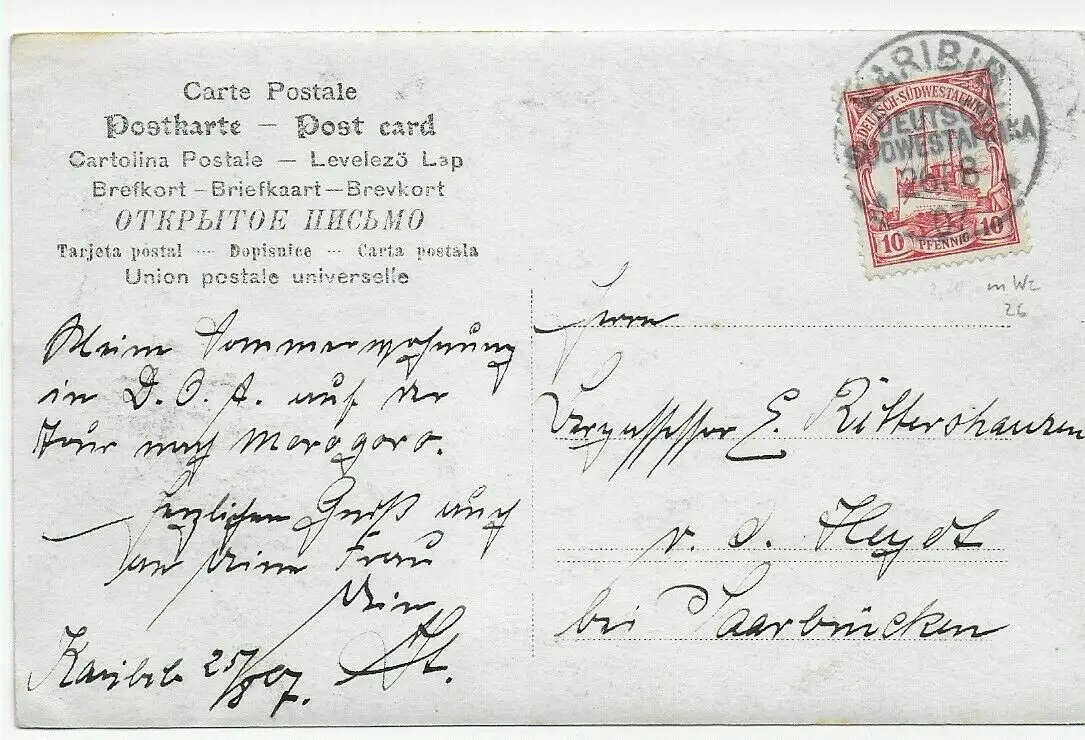 Carte Postale
Postkarte — Post card
Cartolina Postale — Levelező Lap
Brefkort – Briefkaart — Brevkort
ОТКРЫТОЕ ПИСЬМО
Tarjeta postal — Dopisnice — Carta postala
Union postale universelle
KARIBIB
DEUTSCH-
SÜDWESTAFRIKA
26/8
07
DEUTSCH-SÜDWESTAFRIKA
10 PFENNIG 10
m Wz
26
Meine Sommerwohnung
in D. O. A. auf der
Tour nach Morogoro.
Herzlichen Gruß auch
an Deine Frau
Dein
St.
Karibib 25/8 07.
Herrn
Bergassessor E. Rittershausen
v. d. Heydt
bei Saarbrücken